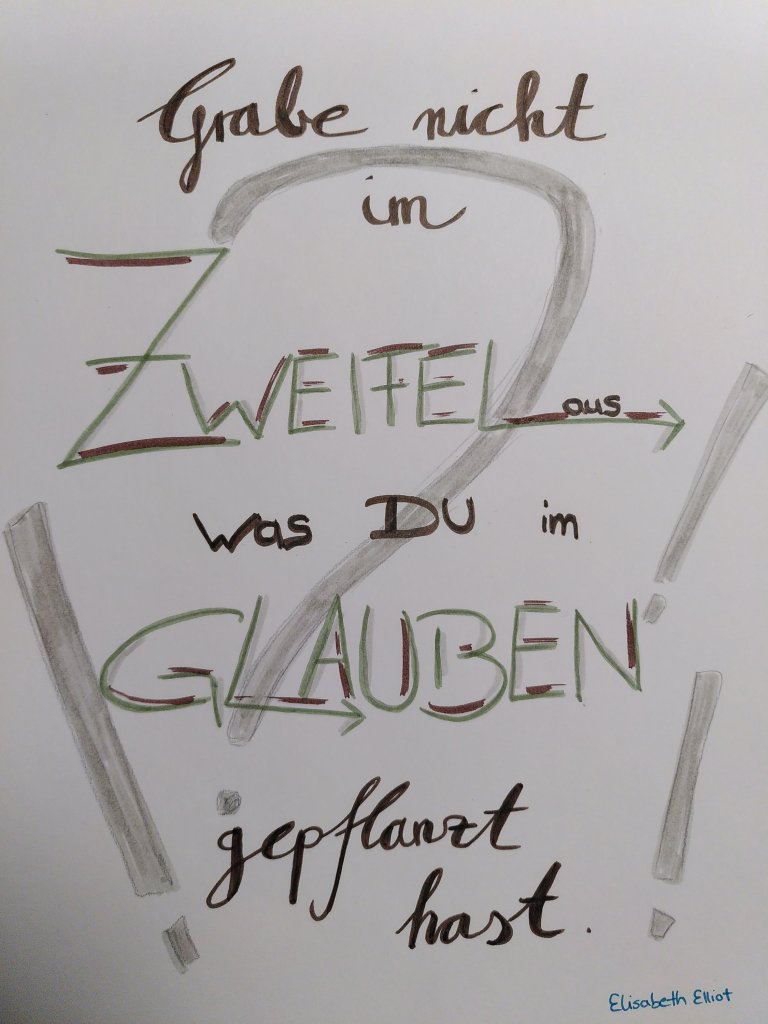 Grabe nicht
im
ZWEIFEL aus
was DU im
GLAUBEN
gepflanzt
hast.
Elisabeth Elliot